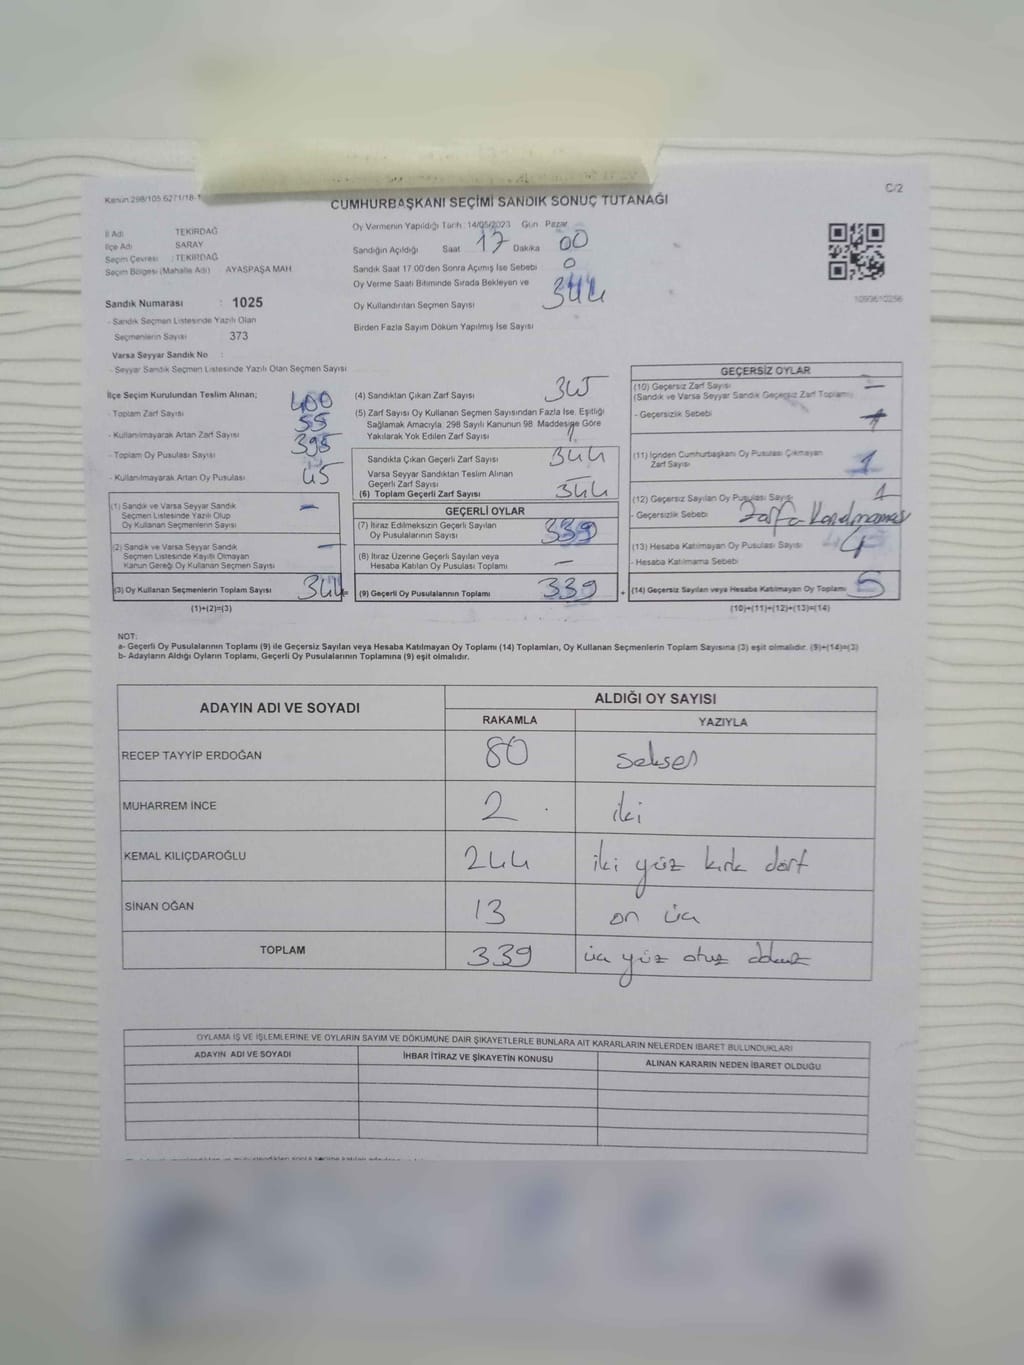 Kanun 298/105 6271/18-1
C/2
CUMHURBAŞKANI SEÇİMİ SANDIK SONUÇ TUTANAĞI
İl Adı TEKİRDAĞ
İlçe Adı SARAY
Seçim Çevresi : TEKİRDAĞ
Seçim Bölgesi (Mahalle Adı) AYASPAŞA MAH.
Sandık Numarası : 1025
- Sandık Seçmen Listesinde Yazılı Olan
Seçmenlerin Sayısı 373
Varsa Seyyar Sandık No :
- Seyyar Sandık Seçmen Listesinde Yazılı Olan Seçmen Sayısı
Oy Vermenin Yapıldığı Tarih: 14/05/2023 Gün Pazar
Sandığın Açıldığı Saat 17 Dakika 00
Sandık Saat 17:00'den Sonra Açımış İse Sebebi 0
Oy Verme Saati Bitiminde Sırada Bekleyen ve
Oy Kullandırılan Seçmen Sayısı 344
Birden Fazla Sayım Döküm Yapılmış İse Sayısı
İlçe Seçim Kurulundan Teslim Alınan; 400
- Toplam Zarf Sayısı 55
- Kullanılmayarak Artan Zarf Sayısı
- Toplam Oy Pusulası Sayısı
- Kullanılmayarak Artan Oy Pusulası 45
(1) Sandık ve Varsa Seyyar Sandık
Seçmen Listesinde Yazılı Olup
Oy Kullanan Seçmenlerin Sayısı —
(2) Sandık ve Varsa Seyyar Sandık
Seçmen Listesinde Kayıtlı Olmayan
Kanun Gereği Oy Kullanan Seçmen Sayısı —
(3) Oy Kullanan Seçmenlerin Toplam Sayısı 344
(1)+(2)=(3)
(4) Sandıktan Çıkan Zarf Sayısı 345
(5) Zarf Sayısı Oy Kullanan Seçmen Sayısından Fazla İse, Eşitliği
Sağlamak Amacıyla, 298 Sayılı Kanunun 98. Maddesine Göre
Yakılarak Yok Edilen Zarf Sayısı 1
Sandıkta Çıkan Geçerli Zarf Sayısı 344
Varsa Seyyar Sandıktan Teslim Alınan
Geçerli Zarf Sayısı
(6) Toplam Geçerli Zarf Sayısı 344
GEÇERLİ OYLAR
(7) İtiraz Edilmeksizin Geçerli Sayılan
Oy Pusulalarının Sayısı 339
(8) İtiraz Üzerine Geçerli Sayılan veya
Hesaba Katılan Oy Pusulası Toplamı —
(9) Geçerli Oy Pusulalarının Toplamı 339
GEÇERSİZ OYLAR
(10) Geçersiz Zarf Sayısı —
(Sandık ve Varsa Seyyar Sandık Geçersiz Zarf Toplamı)
- Geçersizlik Sebebi
(11) İçinden Cumhurbaşkanı Oy Pusulası Çıkmayan
Zarf Sayısı 1
(12) Geçersiz Sayılan Oy Pusulası Sayısı 1
- Geçersizlik Sebebi
(13) Hesaba Katılmayan Oy Pusulası Sayısı 4
- Hesaba Katılmama Sebebi
(14) Geçersiz Sayılan veya Hesaba Katılmayan Oy Toplamı 5
(10)+(11)+(12)+(13)=(14)
NOT:
a- Geçerli Oy Pusulalarının Toplamı (9) ile Geçersiz Sayılan veya Hesaba Katılmayan Oy Toplamı (14) Toplamları, Oy Kullanan Seçmenlerin Toplam Sayısına (3) eşit olmalıdır. (9)+(14)=(3)
b- Adayların Aldığı Oyların Toplamı, Geçerli Oy Pusulalarının Toplamına (9) eşit olmalıdır.
ADAYIN ADI VE SOYADI
ALDIĞI OY SAYISI
RAKAMLA YAZIYLA
RECEP TAYYİP ERDOĞAN 80 seksen
MUHARREM İNCE 2 iki
KEMAL KILIÇDAROĞLU 244 iki yüz kırk dört
SİNAN OĞAN 13 on üç
TOPLAM 339 üç yüz otuz dokuz
OYLAMA İŞ VE İŞLEMLERİNE VE OYLARIN SAYIM VE DÖKÜMÜNE DAİR ŞİKAYETLERLE BUNLARA AİT KARARLARIN NELERDEN İBARET BULUNDUKLARI
ADAYIN ADI VE SOYADI
İHBAR İTİRAZ VE ŞİKAYETİN KONUSU
ALINAN KARARIN NEDEN İBARET OLDUĞU